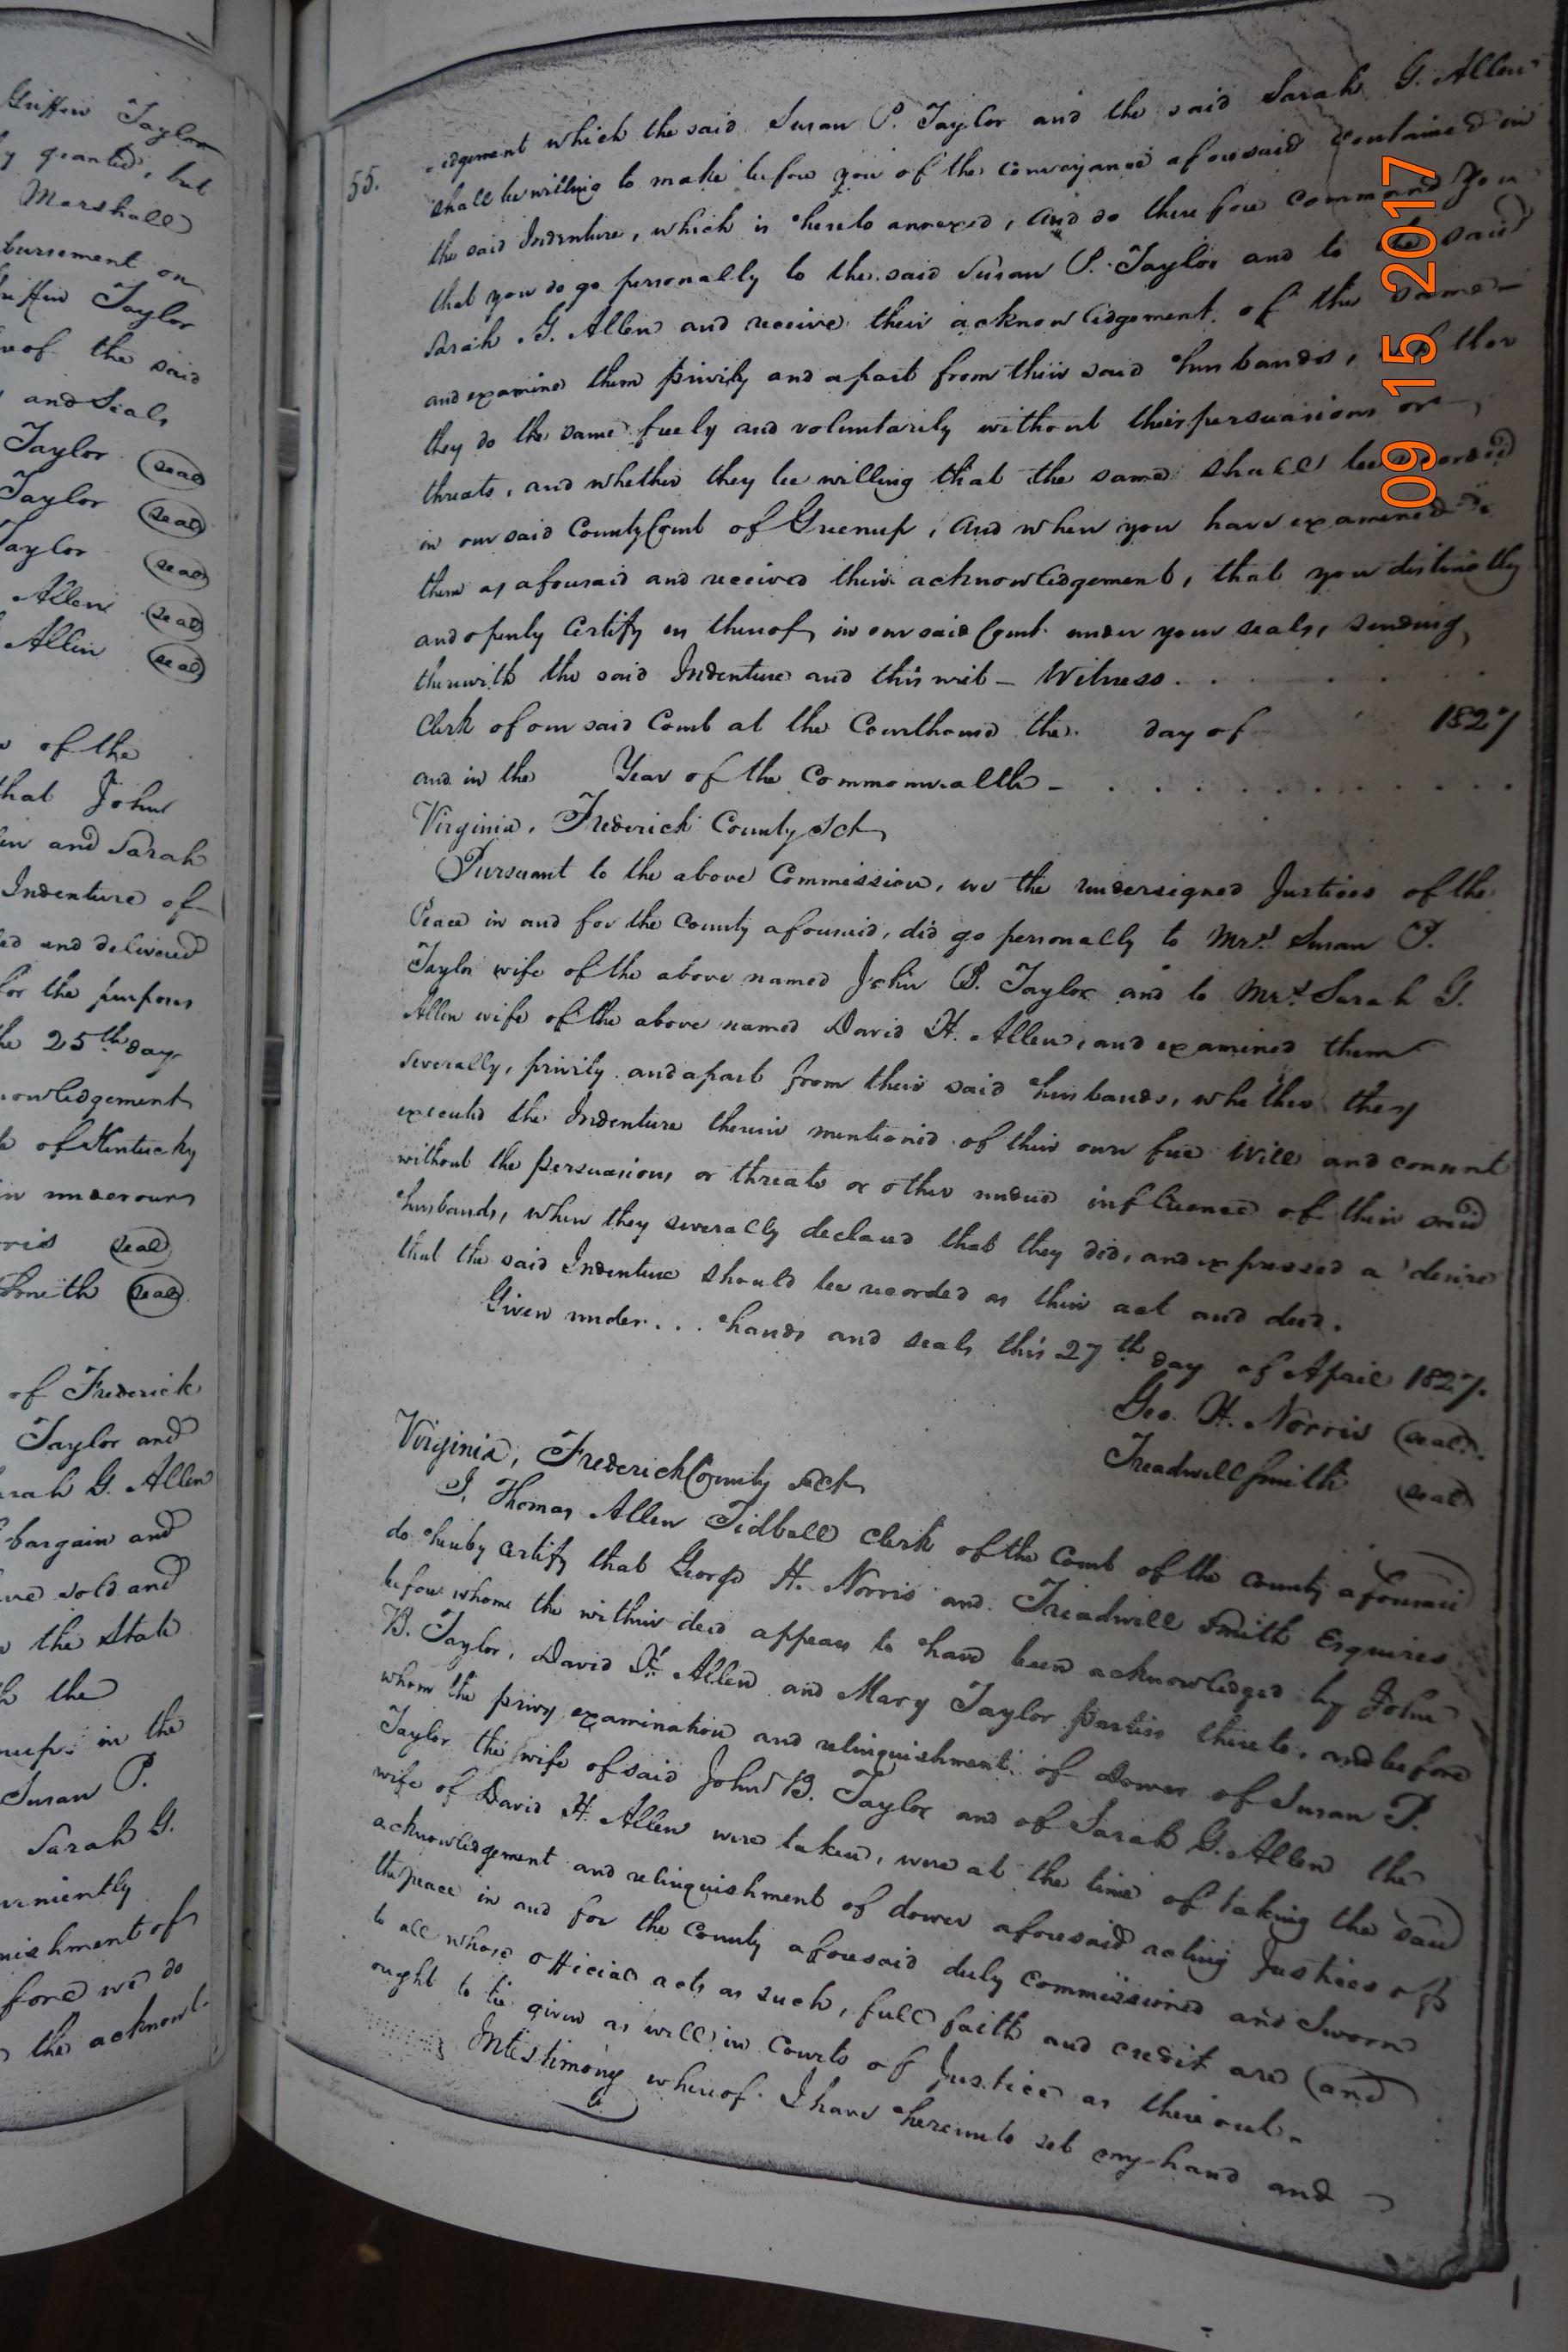 Griffin Taylor
granted, but
Marshall
bursement on
Griffin Taylor
of the said
and Seals
Taylor seal
Taylor seal
Taylor seal
Allen seal
Allen seal
of the
that John
and Sarah
Indenture of
and delivered
for the purposes
the 25th day
owledgement
of Kentucky
in under our
Norris seal
Smith seal
of Frederick
Taylor and
Sarah G. Allen
bargain and
sold and
the State
the
in the
Susan P.
Sarah G.
veniently
uishment of
fore we do
the acknowl-
55.
-edgement which the said Susan P. Taylor and the said Sarah G. Allen
shall be willing to make before you of the conveyance aforesaid contained in
the said Indenture, which is hereto annexed, and do therefore command you
that you do go personally to the said Susan P. Taylor and to the said
Sarah G. Allen and receive their acknowledgement of the same -
and examine them privily and apart from their said husbands, whether
they do the same freely and voluntarily without their persuasions or
threats, and whether they be willing that the same shall be recorded
in our said County Court of Greenup, and when you have examined
them as aforesaid and received their acknowledgement, that you distinctly
and openly certify us thereof in our said Court under your seals, sending
therewith the said Indenture and this writ - Witness . . . .
Clerk of our said Court at the Courthouse the day of 1827
and in the Year of the Commonwealth - . . . . . . . . . .
Virginia, Frederick County Sct
Pursuant to the above Commission, we the undersigned Justices of the
Peace in and for the County aforesaid, did go personally to Mrs. Susan P.
Taylor wife of the above named John B. Taylor and to Mrs. Sarah G.
Allen wife of the above named David H. Allen, and examined them
severally, privily and apart from their said husbands, whether they
executed the Indenture therein mentioned of their own free will and consent
without the persuasions or threats or other undue influence of their said
husbands, when they severally declared that they did, and expressed a desire
that the said Indenture should be recorded as their act and deed.
Given under . . . hands and seals this 27th day of April 1827.
Geo. H. Norris seal
Treadwell Smith seal
Virginia, Frederick County Sct
I, Thomas Allen Tidball Clerk of the Court of the County aforesaid
do hereby certify that George H. Norris and Treadwell Smith Esquires
before whom the within deed appears to have been acknowledged by John
B. Taylor, David H. Allen and Mary Taylor parties thereto, and before
whom the privy examination and relinquishment of dower of Susan P.
Taylor the wife of said John B. Taylor and of Sarah G. Allen the
wife of David H. Allen were taken, were at the time of taking the said
acknowledgement and relinquishment of dower aforesaid acting Justices of
the peace in and for the County aforesaid duly commissioned and Sworn
to all whose official acts as such, full faith and credit are (and
ought to be given as well in Courts of Justice as thereout -
In testimony whereof I have hereunto set my hand and
09 15 2017